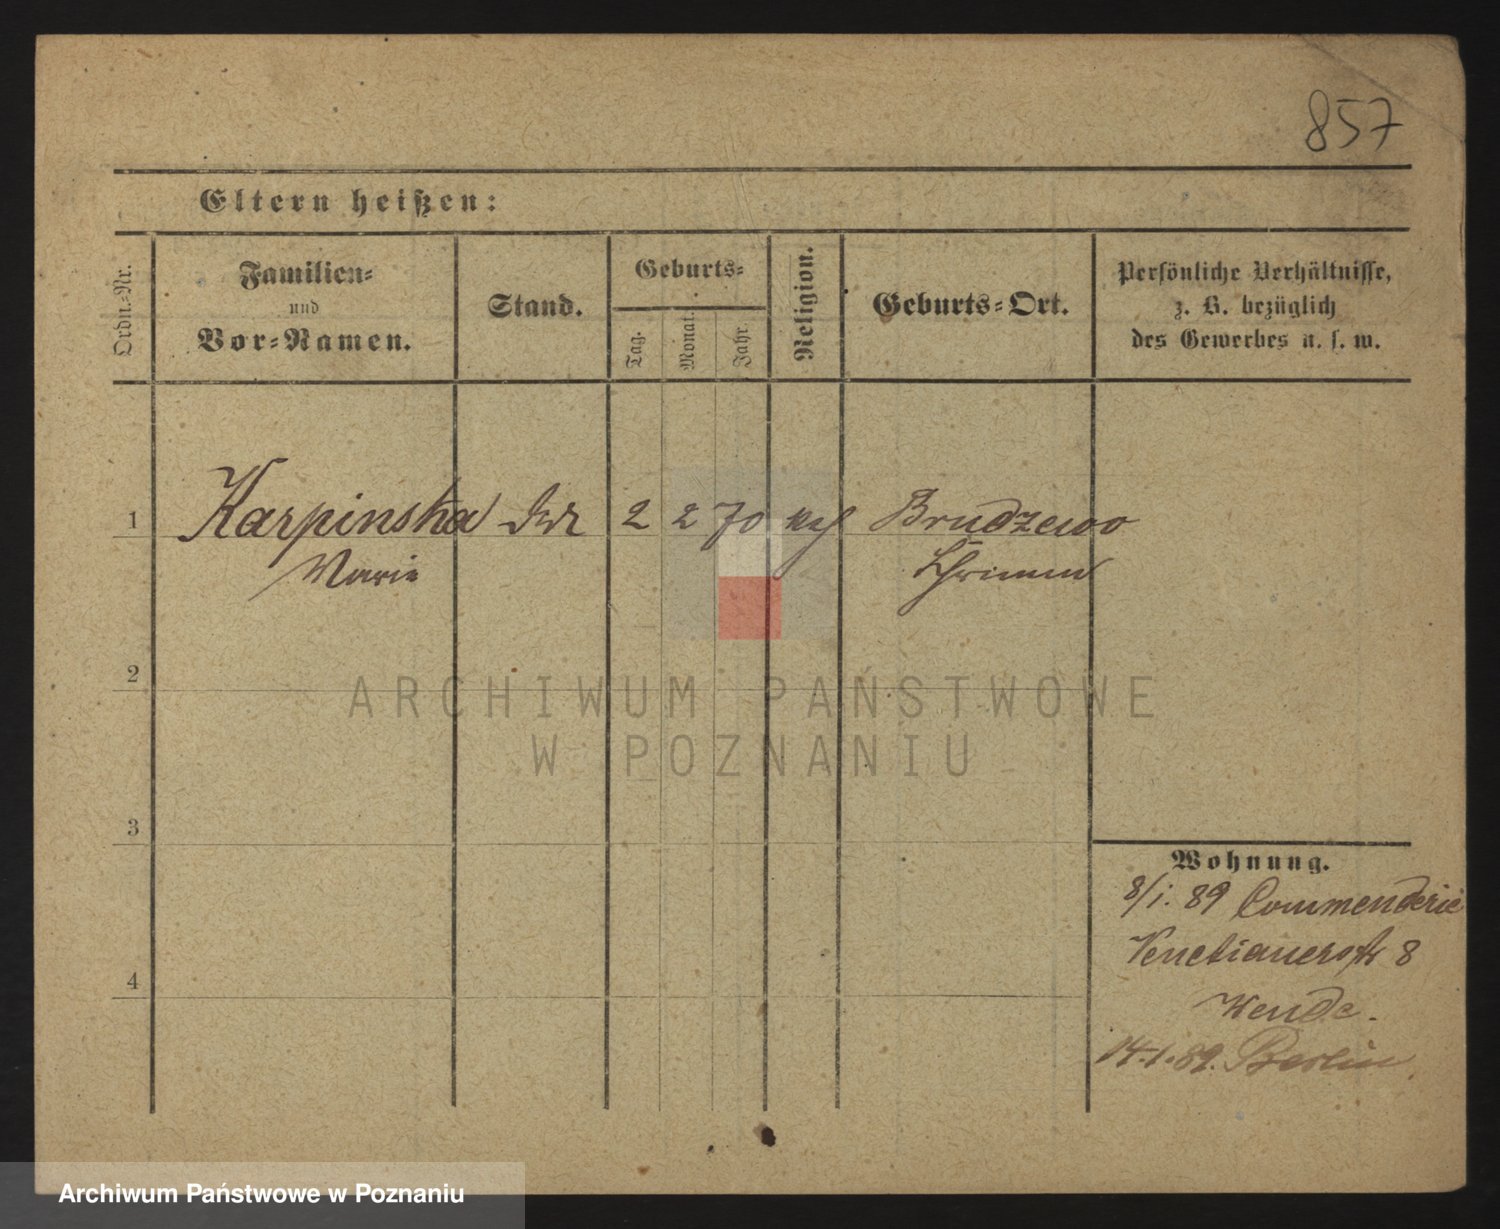 857
Eltern heißen:
Ordn.-Nr.
Familien-
und
Vor-Namen.
Stand.
Geburts-
Tag.
Monat.
Jahr.
Religion.
Geburts-Ort.
Persönliche Verhältnisse,
z. B. bezüglich
des Gewerbes u. s. w.
1 Karpinska 2 2 70 Brudzewo
Marie Schrimm
2
ARCHIWUM PAŃSTWOWE
W POZNANIU
3
Wohnung.
8/1. 89 Commenderie
Venetianerstr 8
4
Wende.
14.1.89. Berlin
Archiwum Państwowe w Poznaniu